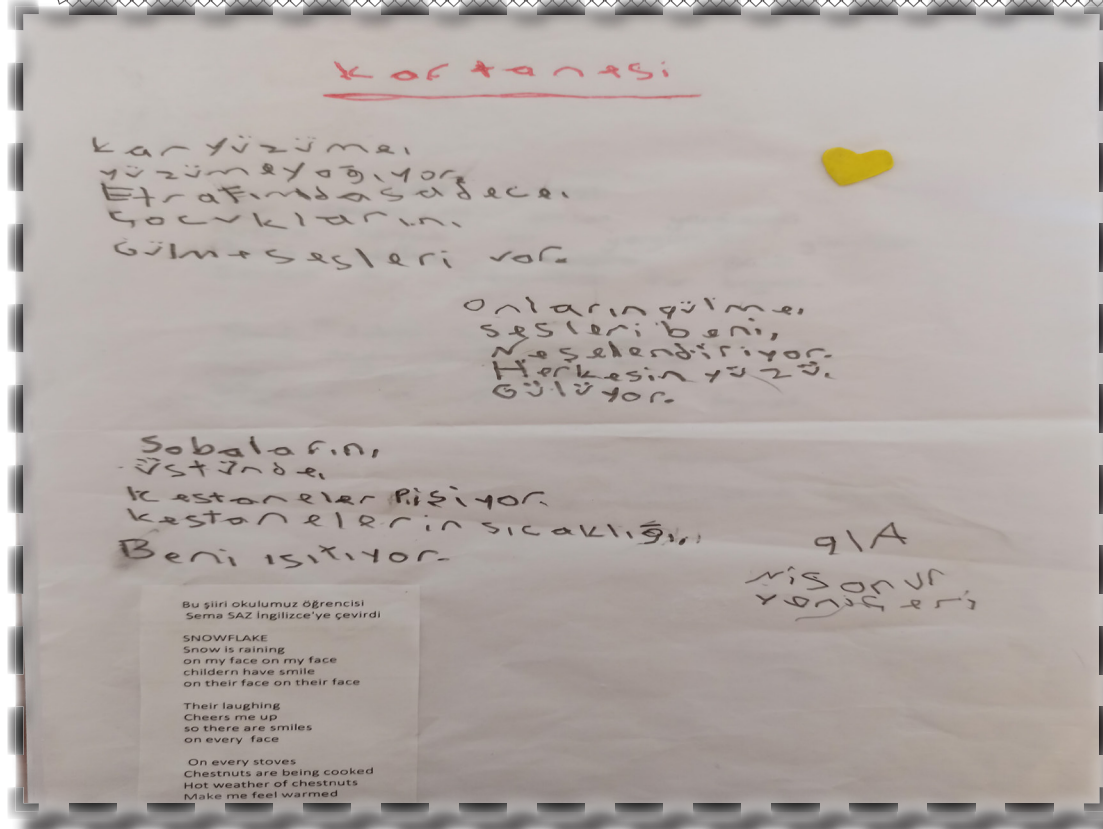 kartanesi
kar yüzüme,
yüzüme yağıyor.
Etrafımda sadece,
Çocukların,
Gülme sesleri var.
onların gülme,
sesleri beni,
Neşelendiriyor.
Herkesin yüzü,
Gülüyor.
Sobaların,
üstünde,
kestaneler Pişiyor.
kestanelerin sıcaklığı,
Beni ısıtıyor.
9/A
Nisanur
yeniçeri
Bu şiiri okulumuz öğrencisi
Sema SAZ İngilizce'ye çevirdi
SNOWFLAKE
Snow is raining
on my face on my face
childern have smile
on their face on their face
Their laughing
Cheers me up
so there are smiles
on every face
On every stoves
Chestnuts are being cooked
Hot weather of chestnuts
Make me feel warmed